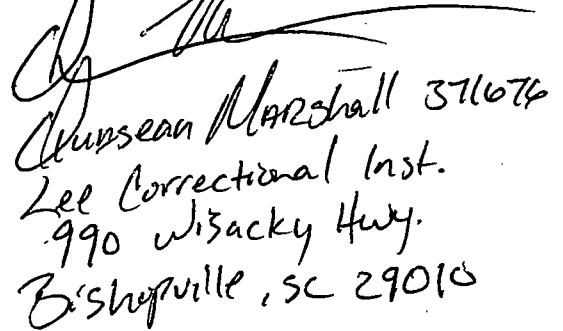 Marshall 371676
Lee Correctional Inst.
990 Wisacky Hwy.
Bishopville, SC 29010